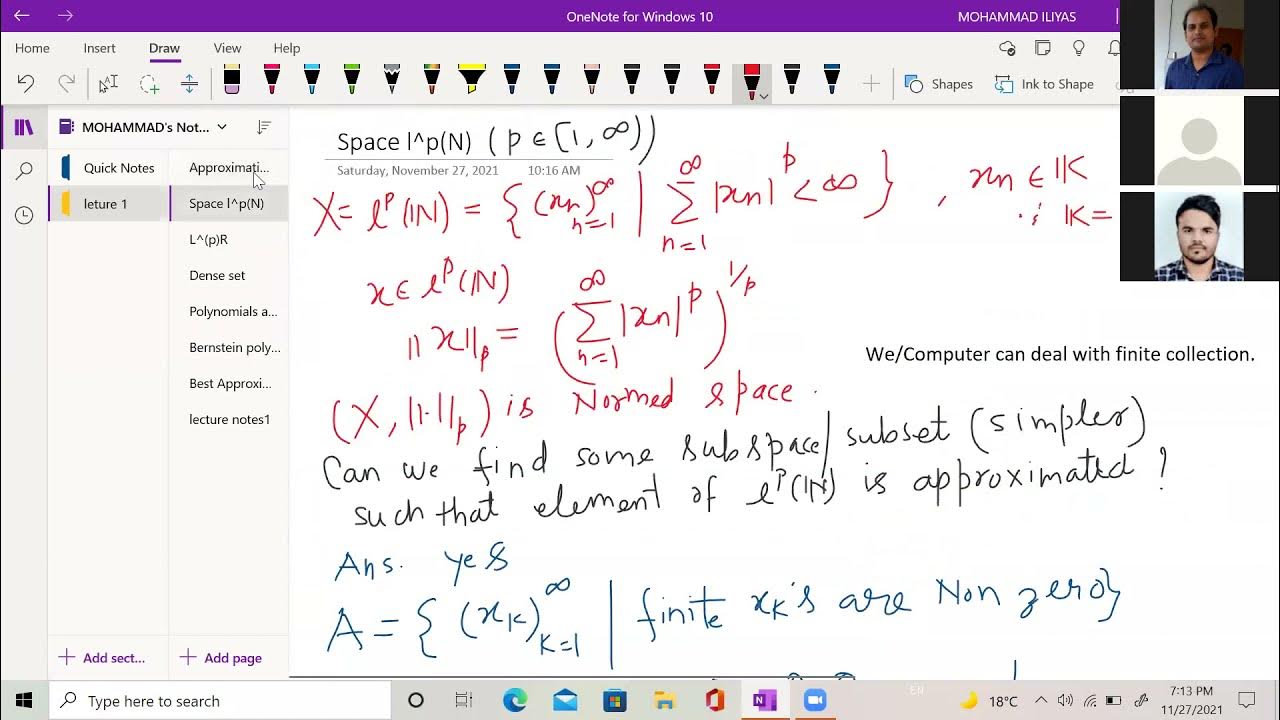 OneNote for Windows 10
MOHAMMAD ILIYAS
Home Insert Draw View Help
Shapes Ink to Shape
MOHAMMAD's Not...
Quick Notes
leture 1
Add sect...
Approximati...
Space l^p(N)
L^(p)R
Dense set
Polynomials a...
Bernstein poly...
Best Approxi...
lecture notes1
Add page
Space l^p(N) (p ∈ [1, ∞))
Saturday, November 27, 2021 10:16 AM
X = l^p(ℕ) = { (xn)_{n=1}^∞ | ∑_{n=1}^∞ |xn|^p < ∞ } , xn ∈ 𝕂
∴ 𝕂 =
x ∈ l^p(ℕ)
||x||_p = ( ∑_{n=1}^∞ |xn|^p )^{1/p}
We/Computer can deal with finite collection.
(X, ||·||_p) is Normed space.
Can we find some subspace/subset (simpler)
such that element of l^p(ℕ) is approximated ?
Ans. yes
A = { (x_K)_{K=1}^∞ | finite x_K's are Non zero}
Type here to search
18°C
EN
7:13 PM
11/27/2021